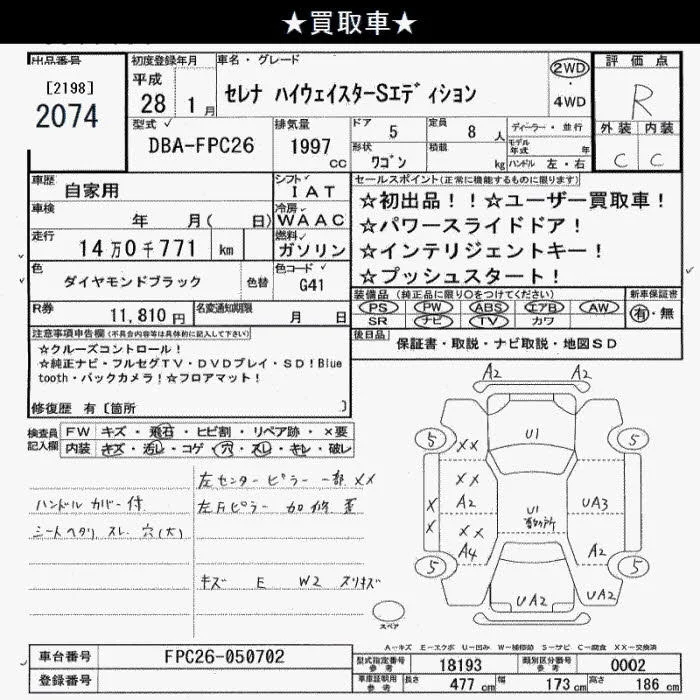 ★買取車★
出品番号
[2198]
2074
初度登録年月
平成
28 1月
車名・グレード
セレナ ハイウェイスターSエディション
2WD
・
4WD
評価点
R
外装 内装
C C
型式
DBA-FPC26
排気量
1997 CC
ドア 5
定員 8人
形状 ワゴン
積載 kg
ディーラー・並行
モデル年式 年
ハンドル 左・右
車歴 自家用
シフト IAT
車検 年 月( 日)
冷房 WAAC
走行 14万0千771 km
燃料 ガソリン
色 ダイヤモンドブラック
色替
色コード G41
R券 11,810円
名変通知期限 月 日
セールスポイント(正常に機能するものに限ります)
☆初出品!!☆ユーザー買取車!
☆パワースライドドア!
☆インテリジェントキー!
☆プッシュスタート!
装備品(純正品に限り○をつけてください)
PS PW ABS エアB AW
SR ナビ TV カワ
新車保証書
有・無
後日品 保証書・取説・ナビ取説・地図SD
注意事項申告欄(不具合内容等は具体的に記入して下さい)
☆クルーズコントロール!
☆純正ナビ・フルセグTV・DVDプレイ・SD!Blue
tooth・バックカメラ!☆フロアマット!
修復歴 有〔箇所 〕
検査員
記入欄
FW キズ・飛石・ヒビ割・リペア跡・×要
内装 キズ・汚レ・コゲ・穴・スレ・キレ・破レ
左センターピラー一部XX
ハンドルカバー付
左Fピラー加修歪
シートヘタリ スレ 穴(大)
キズ E W2 スリキズ
A2
5 U1 5
XX
XX
X A2 U1 UA3
X XX
A4 A2
5 5
UA2 UA2
A2
スペア
A-キズ E-エクボ U-凹み W-補修跡 S-サビ C-腐食 XX-交換済
車台番号 FPC26-050702
登録番号
型式指定番号
参考
18193
類別区分番号
参考
0002
車庫証明用
参考
長さ 477 cm 幅 173 cm 高さ 186 cm